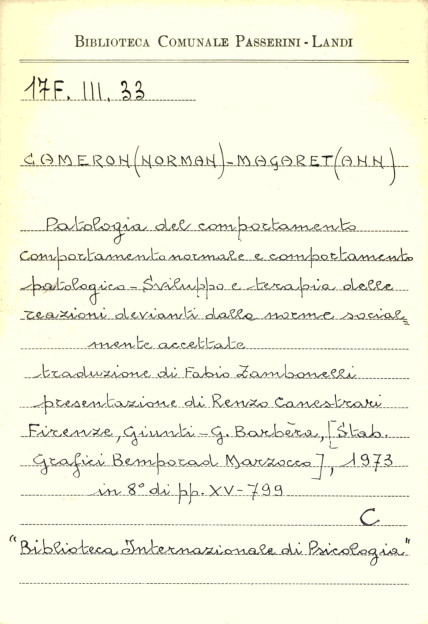 BIBLIOTECA COMUNALE PASSERINI - LANDI
17F. III. 33
CAMERON (NORMAN) - MAGARET (ANN)
Patologia del comportamento
Comportamento normale e comportamento
patologico - Sviluppo e terapia delle
reazioni devianti dalle norme social=
mente accettate
traduzione di Fabio Zambonelli
presentazione di Renzo Canestrari
Firenze, Giunti - G. Barbèra, [Stab.
Grafici Bemporad Marzocco], 1973
in 8° di pp. XV - 799
C
"Biblioteca Internazionale di Psicologia"